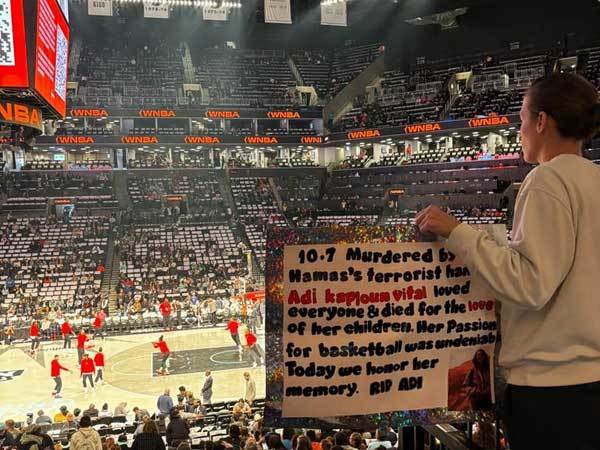 WNBA
WNBA WNBA WNBA WNBA WNBA WNBA WNBA
WNBA WNBA WNBA WNBA WNBA WNBA WNBA
10.7 Murdered by
Hamas's terrorist
Adi kaploun vital loved
everyone & died for the love
of her children. Her Passion
for basketball was
Today we honor her
memory. RIP ADI